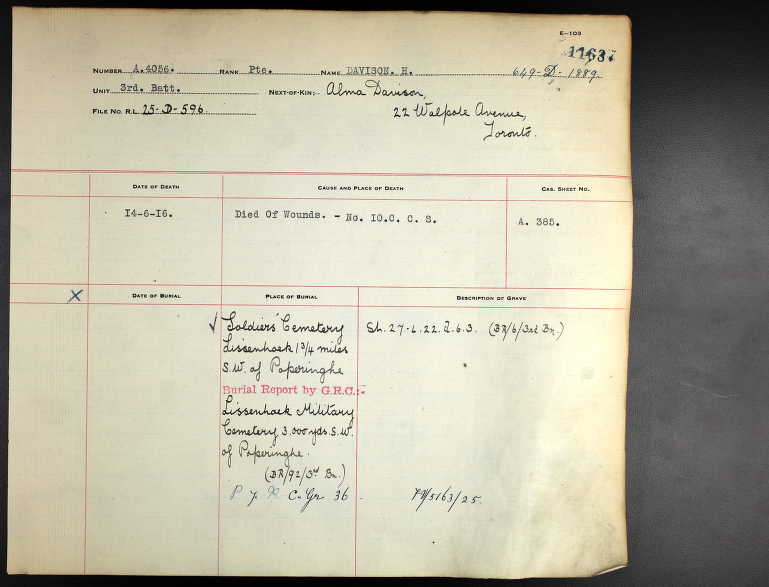 E-103
1163
NUMBER A.4056. RANK Pte. NAME DAVISON. H. 649-D-1889.
UNIT 3rd. Batt. NEXT-OF-KIN:- Alma Davison,
FILE NO. R.L. 25-D-596 22 Walpole Avenue,
Toronto.
DATE OF DEATH CAUSE AND PLACE OF DEATH CAS. SHEET NO.
14-6-16. Died Of Wounds. - No. 10.C. C. S. A. 385.
X DATE OF BURIAL PLACE OF BURIAL DESCRIPTION OF GRAVE
Soldiers' Cemetery Sh. 27-L.22.d.6.3. (BR/6/3rd Bn.)
Lissenhoek 1 3/4 miles
S.W. of Poperinghe
Burial Report by G.R.C:-
Lissenhoek Military
Cemetery 3.000 yds. S.W.
of Poperinghe.
(BR/92/3rd Bn.)
C. Gr. 36